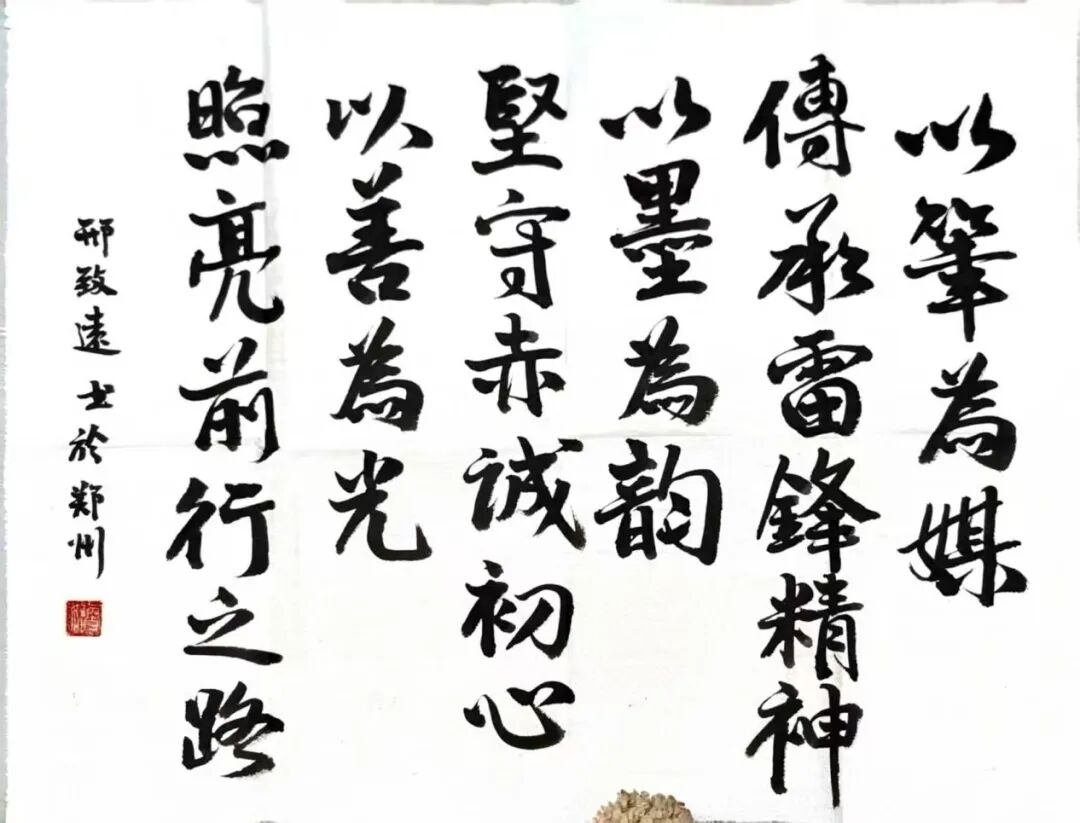 以筆為媒
傳承雷鋒精神
以墨為韵
堅守赤誠初心
以善為光
照亮前行之路
邢致遠 书於鄭州